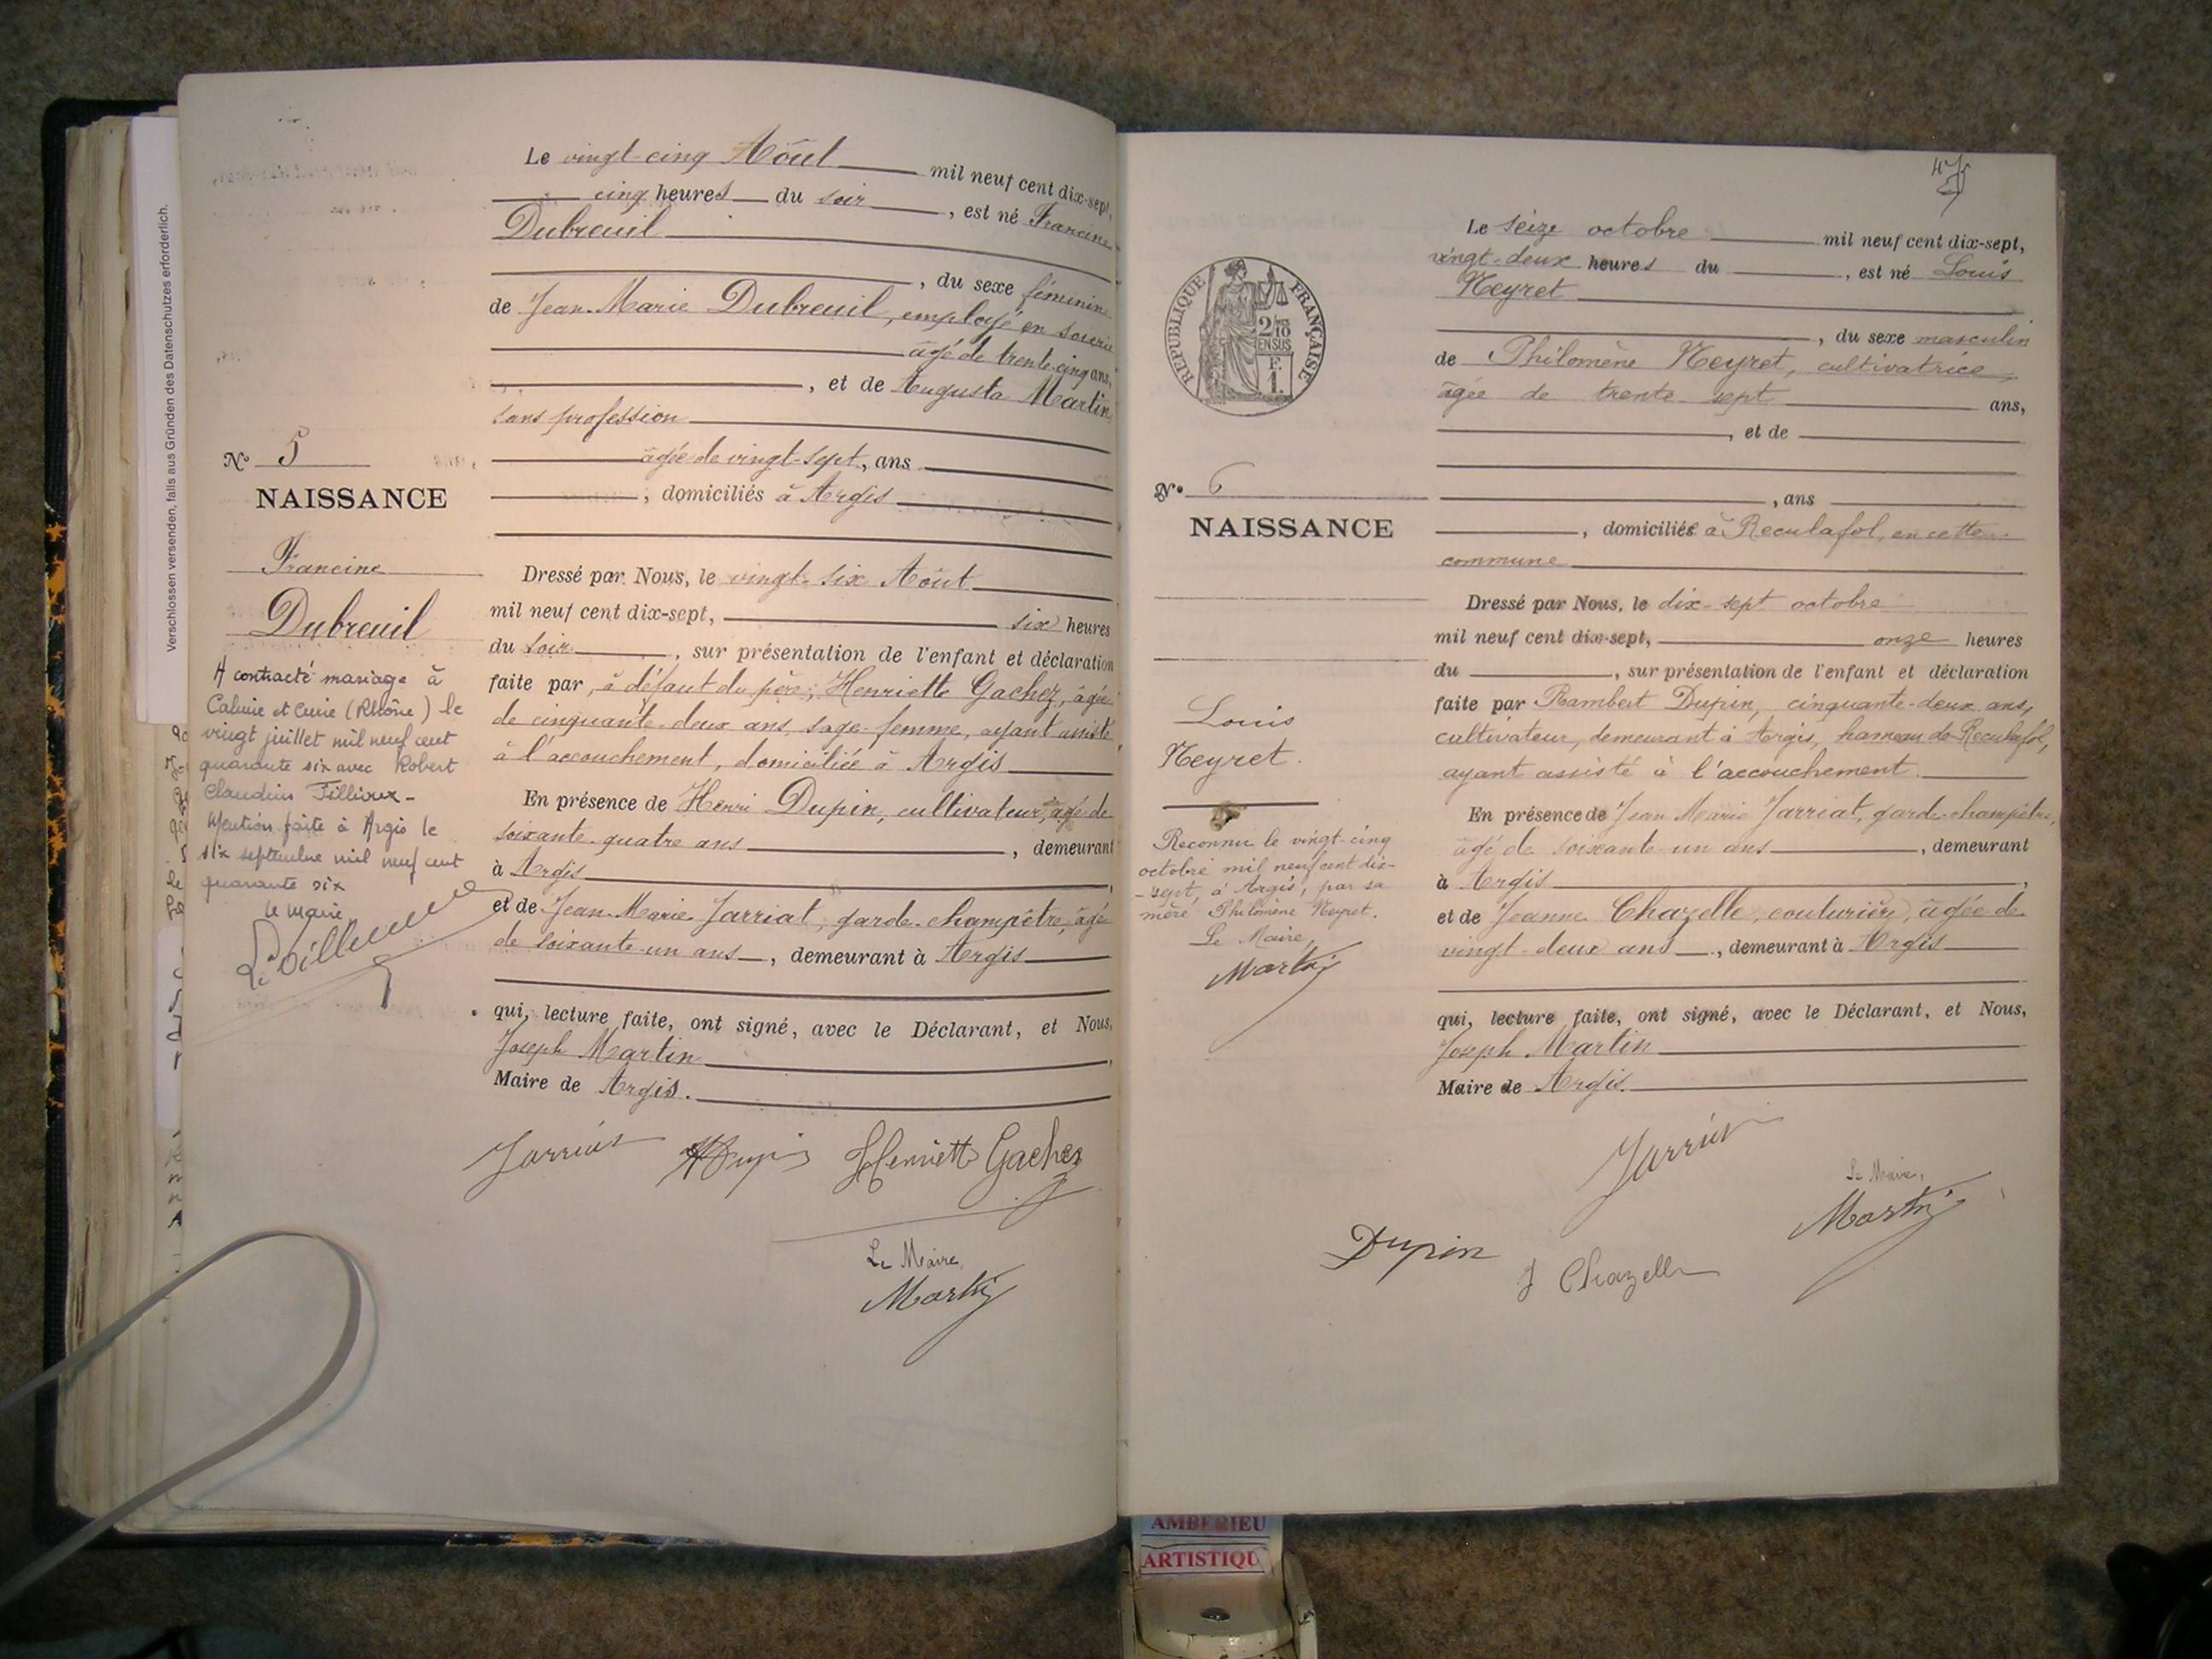 Verschlossen versenden, falls aus Gründen des Datenschutzes erforderlich.
Le vingt-cinq Aôut mil neuf cent dix-sept,
cinq heures du soir, est né Francine
Dubreuil
, du sexe féminin
de Jean-Marie Dubreuil, employé en soierie
âgé de trente-cinq ans,
, et de Augusta Martin,
sans profession
âgée de vingt-sept, ans
, domiciliés à Argis
Dressé par Nous, le vingt-six Aôut
mil neuf cent dix-sept, six heures
du soir, sur présentation de l'enfant et déclaration
faite par, à défaut du père, Henriette Gachez, âgée
de cinquante-deux ans, sage-femme, ayant assisté
à l'accouchement, domiciliée à Argis
En présence de Henri Dupin, cultivateur, âgé de
soixante-quatre ans, demeurant
à Argis,
et de Jean-Marie Jarriat, garde-champêtre, âgé
de soixante-un ans, demeurant à Argis
qui, lecture faite, ont signé, avec le Déclarant, et Nous,
Joseph Martin,
Maire de Argis.
Jarriat HDupin Henriette Gachez
Le Maire,
Martin
No 5
NAISSANCE
Francine
Dubreuil
A contracté mariage à
Caluire et Cuire (Rhône) le
vingt juillet mil neuf cent
quarante six avec Robert
Claudius Tillieux -
Mention faite à Argis le
six septembre mil neuf cent
quarante six
le maire
Le Seize octobre mil neuf cent dix-sept,
vingt-deux heures du, est né Louis
Neyret
, du sexe masculin
de Philomène Neyret, cultivatrice,
âgée de trente-sept ans,
, et de
, ans
, domiciliée à Reculafol, en cette
commune
Dressé par Nous, le dix-sept octobre
mil neuf cent dix-sept, onze heures
du, sur présentation de l'enfant et déclaration
faite par Rambert Dupin, cinquante-deux ans,
cultivateur, demeurant à Argis, hameau de Reculafol,
ayant assisté à l'accouchement.
En présence de Jean Marie Jarriat, garde-champêtre,
âgé de soixante-un ans, demeurant
à Argis,
et de Jeanne Chazelle, couturière, âgée de
vingt-deux ans, demeurant à Argis
qui, lecture faite, ont signé, avec le Déclarant, et Nous,
Joseph Martin
Maire de Argis.
Jarriat
Le Maire,
Martin
Dupin
J Chazelle
RÉPUBLIQUE FRANÇAISE
2/10
EN SUS
F.
1.
No 6
NAISSANCE
Louis
Neyret.
Reconnu le vingt-cinq
octobre mil neuf cent dix-
-sept, à Argis, par sa
mère Philomène Neyret.
Le Maire,
Martin
AMBERIEU
ARTISTIQU